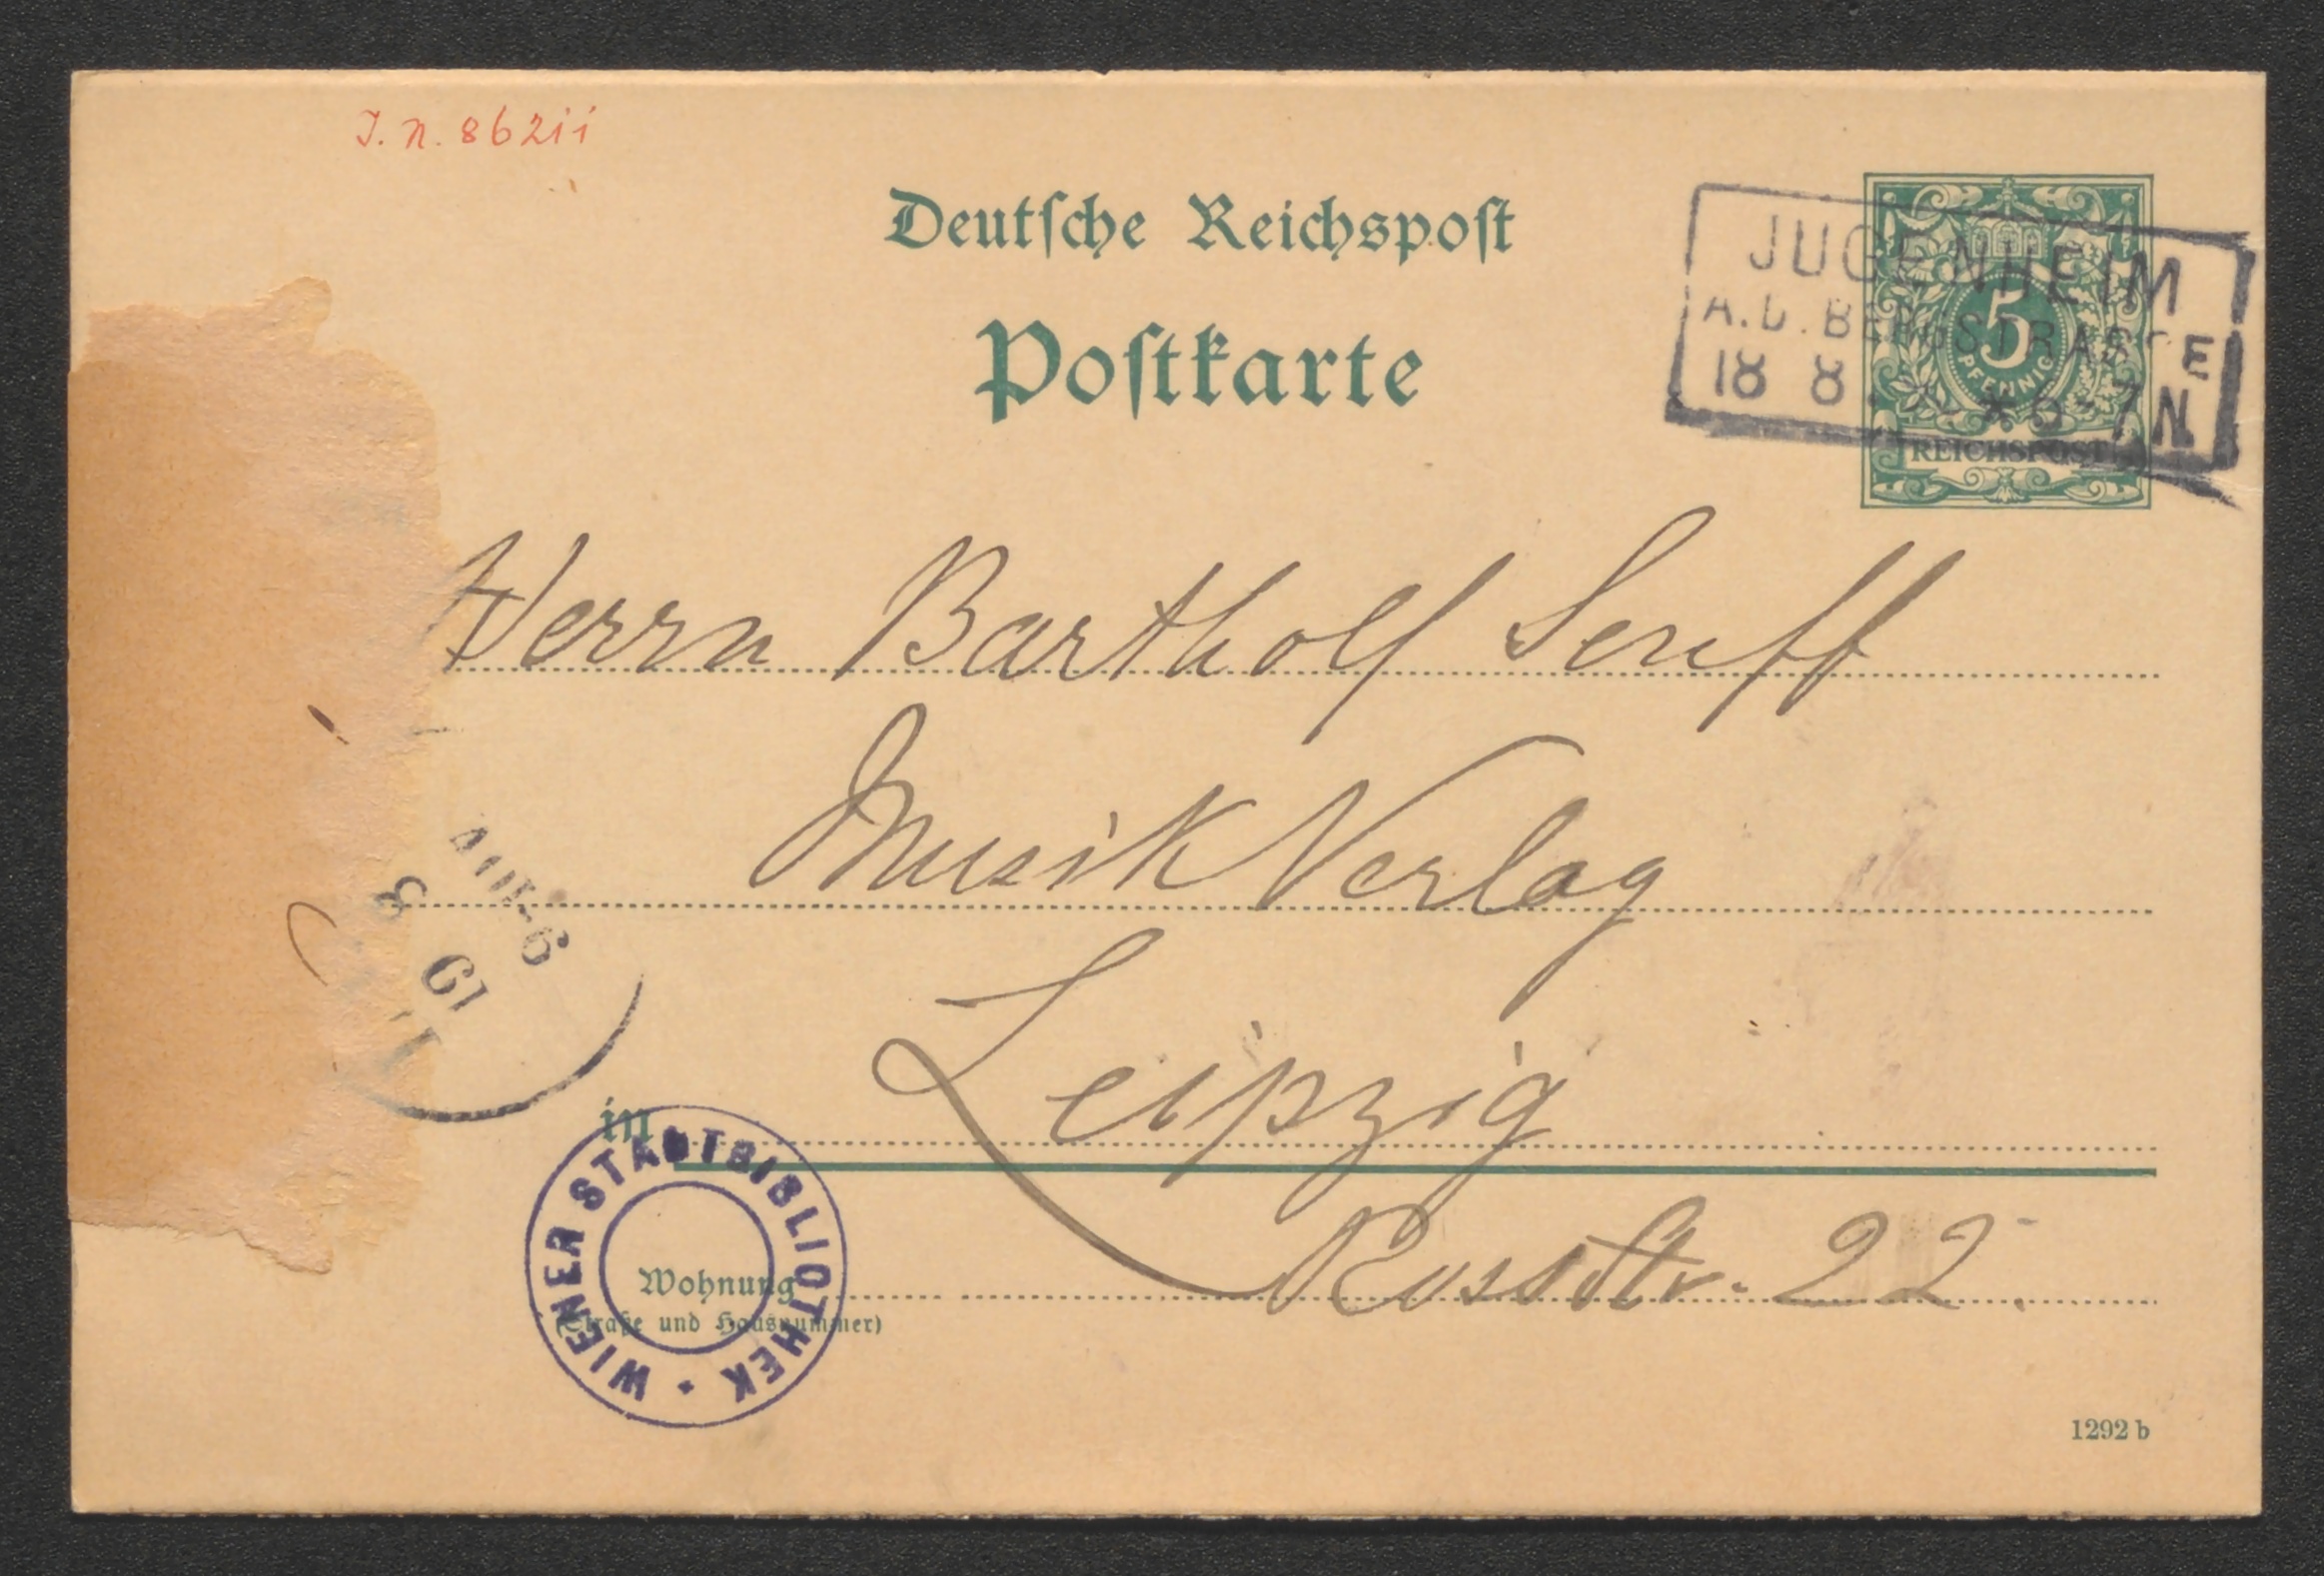 J. N. 86211
Deutsche Reichspost
Postkarte
JUGENHEIM
A.D. BERGSTRASSE
18 8 * 6-7N
5
PFENNIG
REICHSPOST
Herrn Bartholf Senff
Musik Verlag
Leipzig
in
Russstr. 22.
Wohnung
(Straße und Hausnummer)
WIENER STADTBIBLIOTHEK
19 8
1292 b